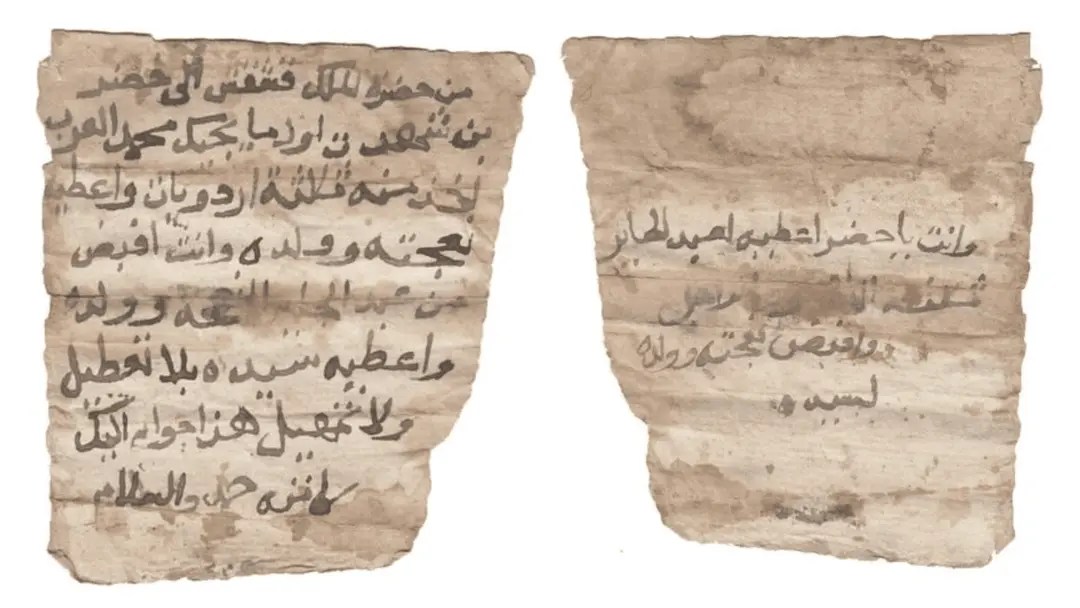 من حضرة الملك قشقش الى خضر
بن شهدت اول ما يجيك محمد العرب
تخذ منه ثلاثة اردويات واعطيه
نعجته وولده وانت اقبض
من عبد الجابر النعجه وولده
واعطيه سيده بلا تعطيل
ولا تمهيل هذا جوابي اليك
والسلام
وانت يا خضر اعطيه لعبد الجابر
واقبض نعجته وولده
لسيده